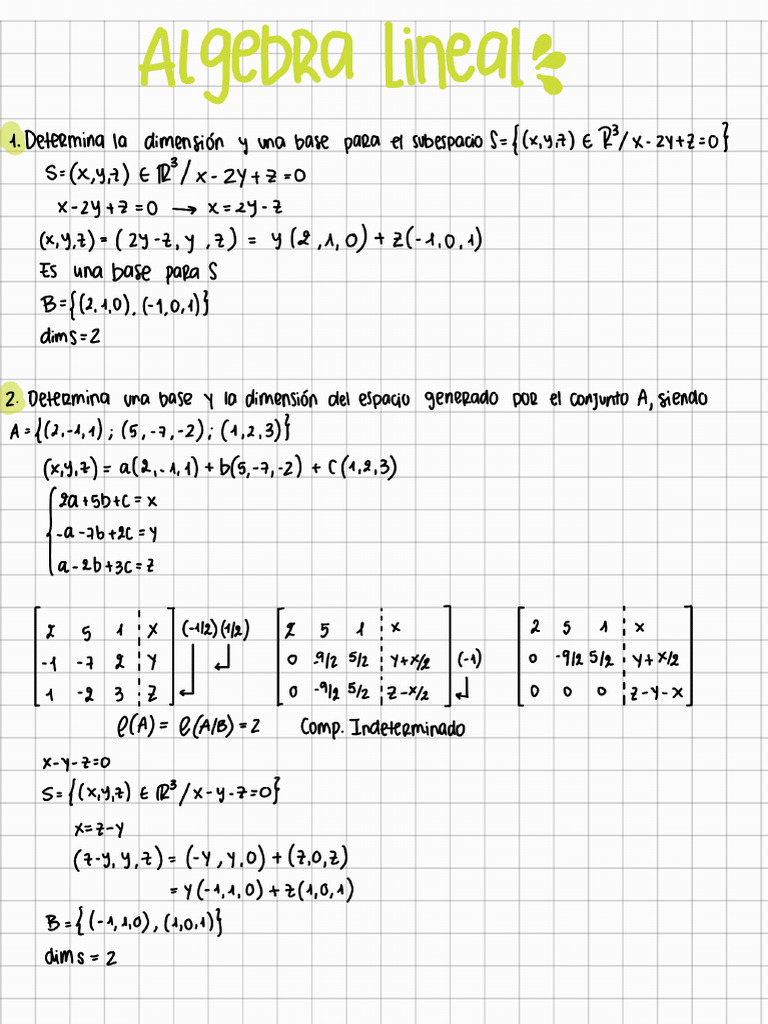 Algebra Lineal
1. Determina la dimensión y una base para el subespacio S={(x,y,z) ∈ ℝ³/x-2y+z=0}
S=(x,y,z) ∈ ℝ³/x-2y+z=0
x-2y+z=0 → x=2y-z
(x,y,z)=(2y-z,y,z) = y(2,1,0)+z(-1,0,1)
Es una base para S
B={(2,1,0),(-1,0,1)}
dim S=2
2. Determina una base y la dimensión del espacio generado por el conjunto A, siendo
A={(2,-1,1);(5,-7,-2);(1,2,3)}
(x,y,z)=a(2,-1,1)+b(5,-7,-2)+c(1,2,3)
2a+5b+c=x
-a-7b+2c=y
a-2b+3c=z
2 5 1 x (-1/2)(1/2) 2 5 1 x 2 5 1 x
-1 -7 2 y 0 -9/2 5/2 y+x/2 (-1) 0 -9/2 5/2 y+x/2
1 -2 3 z 0 -9/2 5/2 z-x/2 0 0 0 z-y-x
ℓ(A)=ℓ(A/B)=2 Comp. Indeterminado
x-y-z=0
S={(x,y,z) ∈ ℝ³/x-y-z=0}
x=z-y
(z-y,y,z)=(-y,y,0)+(z,0,z)
=y(-1,1,0)+z(1,0,1)
B={(-1,1,0),(1,0,1)}
dim s=2